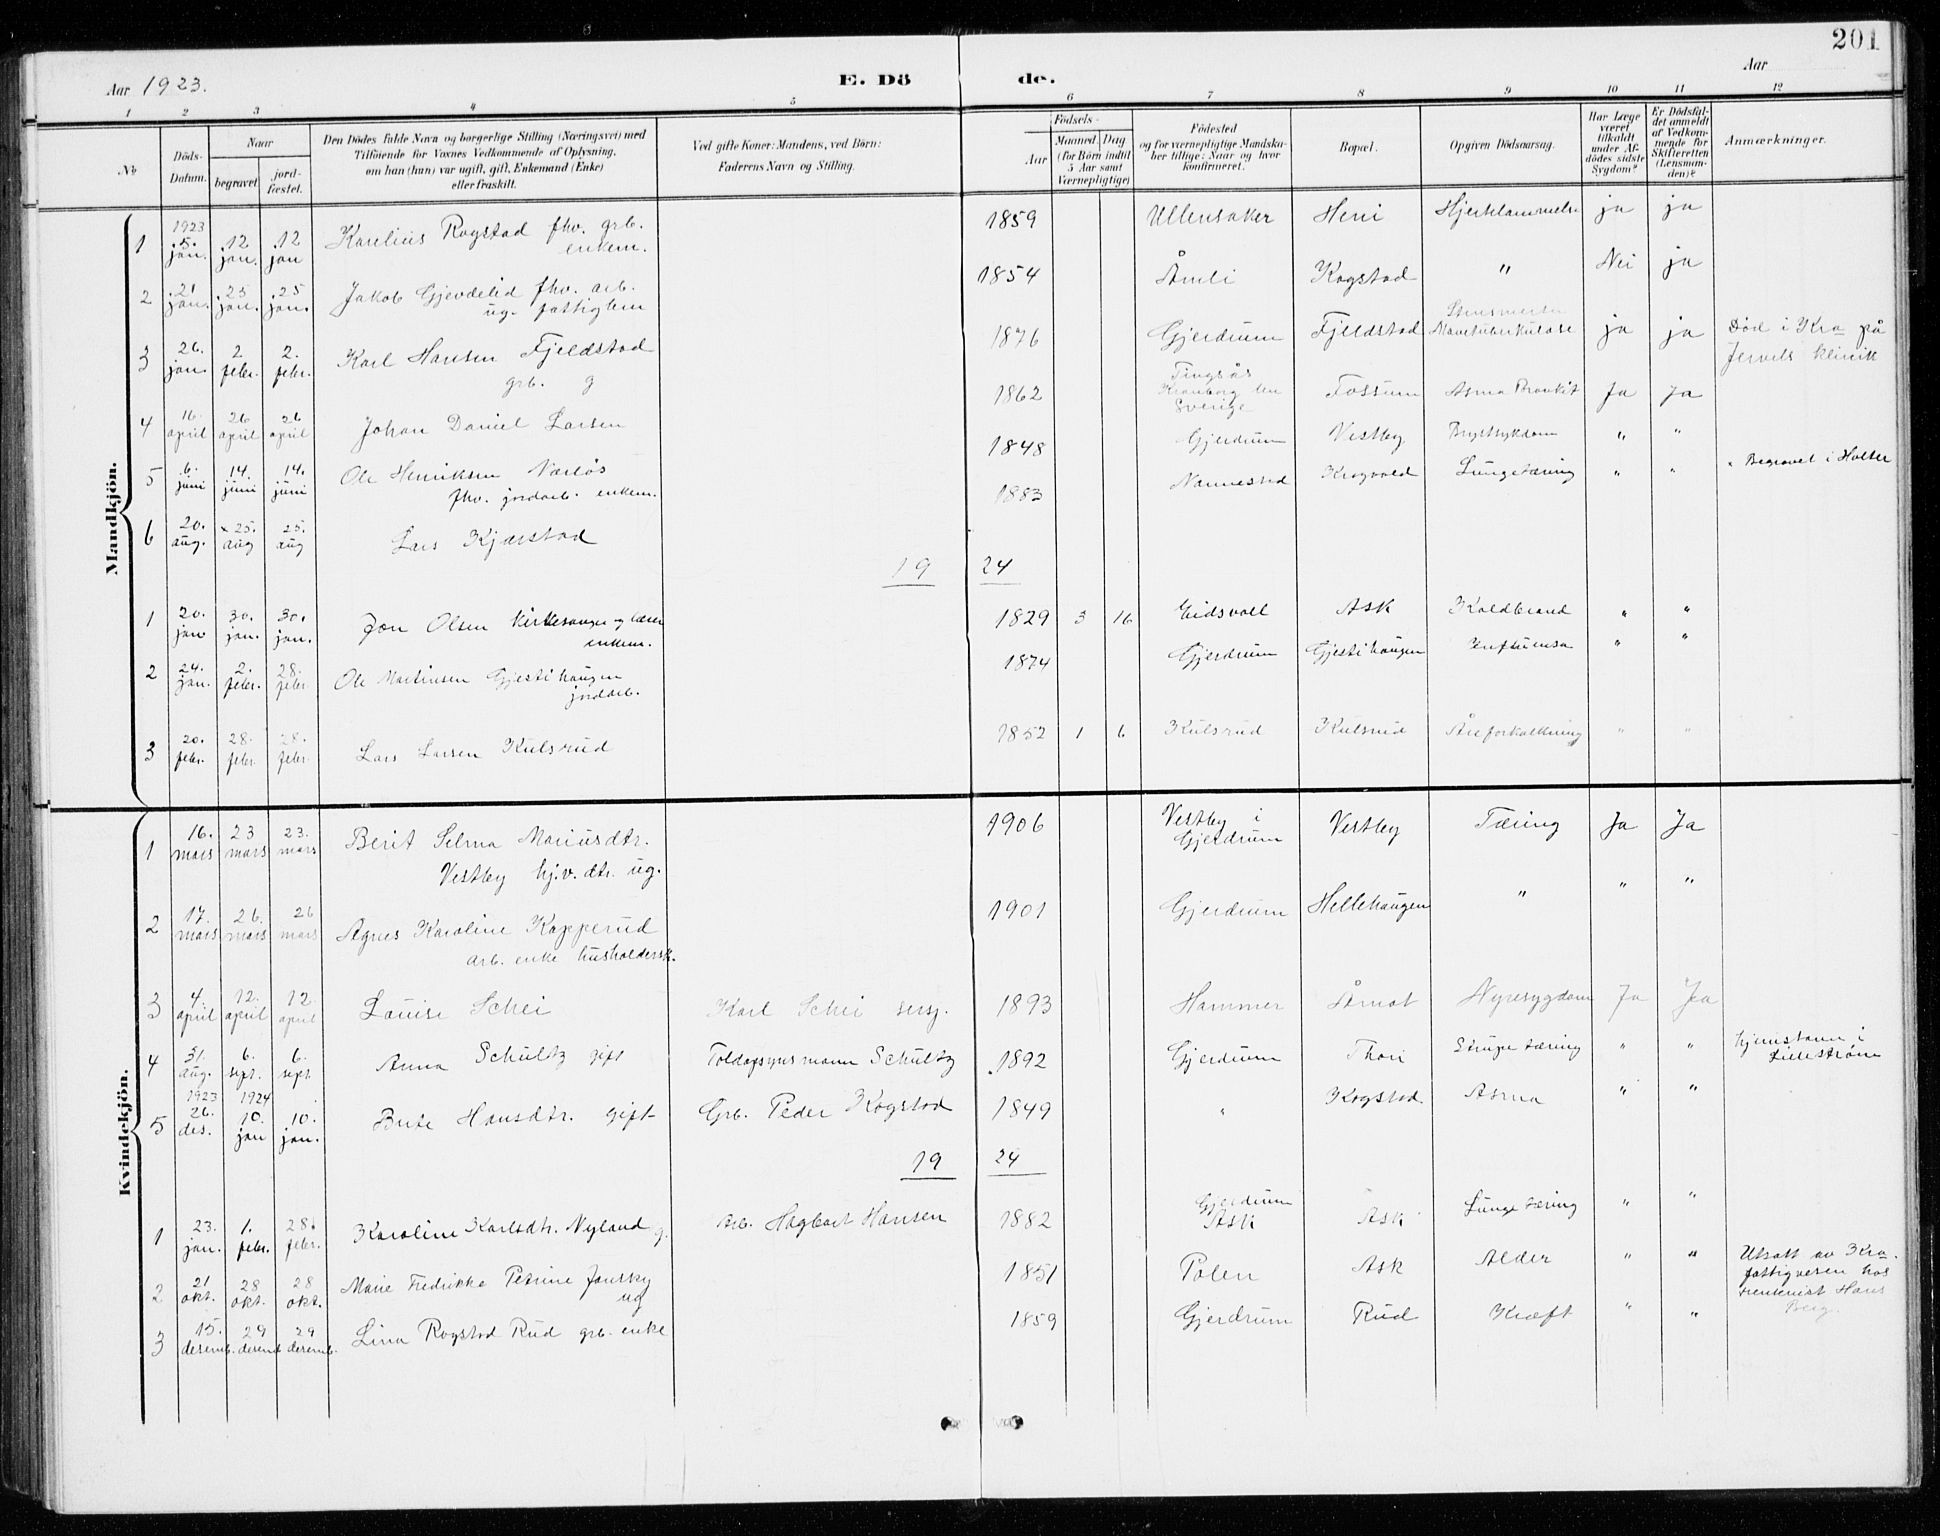 201
Aar 1923. E. Dö de. Aar
1 2 3 4 5 6 7 8 9 10 11 12
No
Döds-Datum.
Naar
begravet
jord-fæstet.
Den Dödes fulde Navn og borgerlige Stilling (Næringsvei) med
Tilföiende for Voxnes Vedkommende af Oplysning,
om han (hun) var ugift, gift, Enkemand (Enke)
eller fraskilt.
Ved gifte Koner: Mandens, ved Börn:
Faderens Navn og Stilling.
Födsels-
Aar
Maaned
Dag
(for Börn indtil
5 Aar samt
Værnepligtige)
Födested
og for værnepligtige Mandska-
ber tillige: Naar og hvor
konfirmeret.
Bopæl.
Opgiven Dödsaarsag.
Har Læge
været
tilkaldt
under Af-
dödes sidste
Sygdom?
Er Dödsfal-
det anmeldt
af Vedkom-
mende for
Skifteretten
(Lensman-
den)?
Anmærkninger.
Mandkjön.
1 1923 5. jan. 12 jan. 12 jan Karelius Rogstad fhv. grb. enkem. 1859 Ullensaker Heni Hjertelammelse ja ja
2 21 jan. 25 jan. 25 jan. Jakob Gjevdelid fhv. arb. ug. fattiglem 1854 Åmli Kogstad " Nei ja
3 26. jan. 2 febr. 2. febr. Karl Hansen Fjeldstad grb. g 1876 Gjerdrum Fjeldstad Mavetuberkulose ja ja Død i Kra på
Jervels klinik
4 16. april 26 april 26 april Johan Daniel Larsen 1862 Tingsås Kronborg len Sverige Fossum Asma Bronkit Ja Ja
5 6. juni 14. juni 14. juni Ole Henriksen Nærløs fhv. jordarb. enkem. 1848 Gjerdrum Vestby Brystsykdom " "
6 20. aug. × 25. aug 25. aug Lars Kjærstad 1883 Nannestad Krogvold Lungetæring " " " Begravet i Holter
19 24
1 20. jan. 30. jan. 30. jan. Jon Olsen kirkesanger og lærer enkem. 1829 3 16 Eidsvoll Ask Koldbrand " "
2 24. jan. 2. febr. 28. febr Ole Martinsen Gjestihaugen jordarb. 1874 Gjerdrum Gjestihaugen Influensa " "
3 20. febr. 28. febr. 28. febr. Lars Larsen Kulsrud 1852 1 6 Kulsrud Kulsrud Åreforkalkning " "
Kvindekjön.
1 16. mars 23 mars 23. mars Berit Selma Mariusdtr. Vestby hj.v. dtr. ug. 1906 Vestby i Gjerdrum Vestby Tæring Ja Ja
2 17. mars 26. mars 26 mars Agnes Karoline Kopperud arb. enke husholdersk. 1901 Gjerdrum Hellehaugen " " "
3 4 april 12. april 12. april Louise Schei Karl Schei sersj. 1893 Hammer Årnot Nyresygdom Ja Ja
4 31. aug. 6. sept. 6. sept Anna Schultz gift Toldopsynsmann Schultz 1892 Gjerdrum Thori Strupetæring " " hjemstavn i
Lillestrøm
5 1923 26. des. 1924 10. jan 10. jan. Berte Hansdtr. gift Grb. Peder Kogstad 1849 " Kogstad Asma " "
19 24
1 23. jan. 1. febr. 28. febr. Karoline Karlsdtr. Nyland g. Arb. Hagbart Hansen 1882 Gjerdrum Ask Ask Lungetæring " "
2 21 okt. 28 okt. 28 okt. Marie Fredrikke Petrine Jansky ug 1851 Polen Ask Alder " " Utsatt av Kra.
fattigvesen hos
rentenist Hans
Berg.
3 15. desemb. 29 desemb 29 desemb. Lina Rogstad Rud grb. enke 1859 Gjerdrum Rud Kræft " "